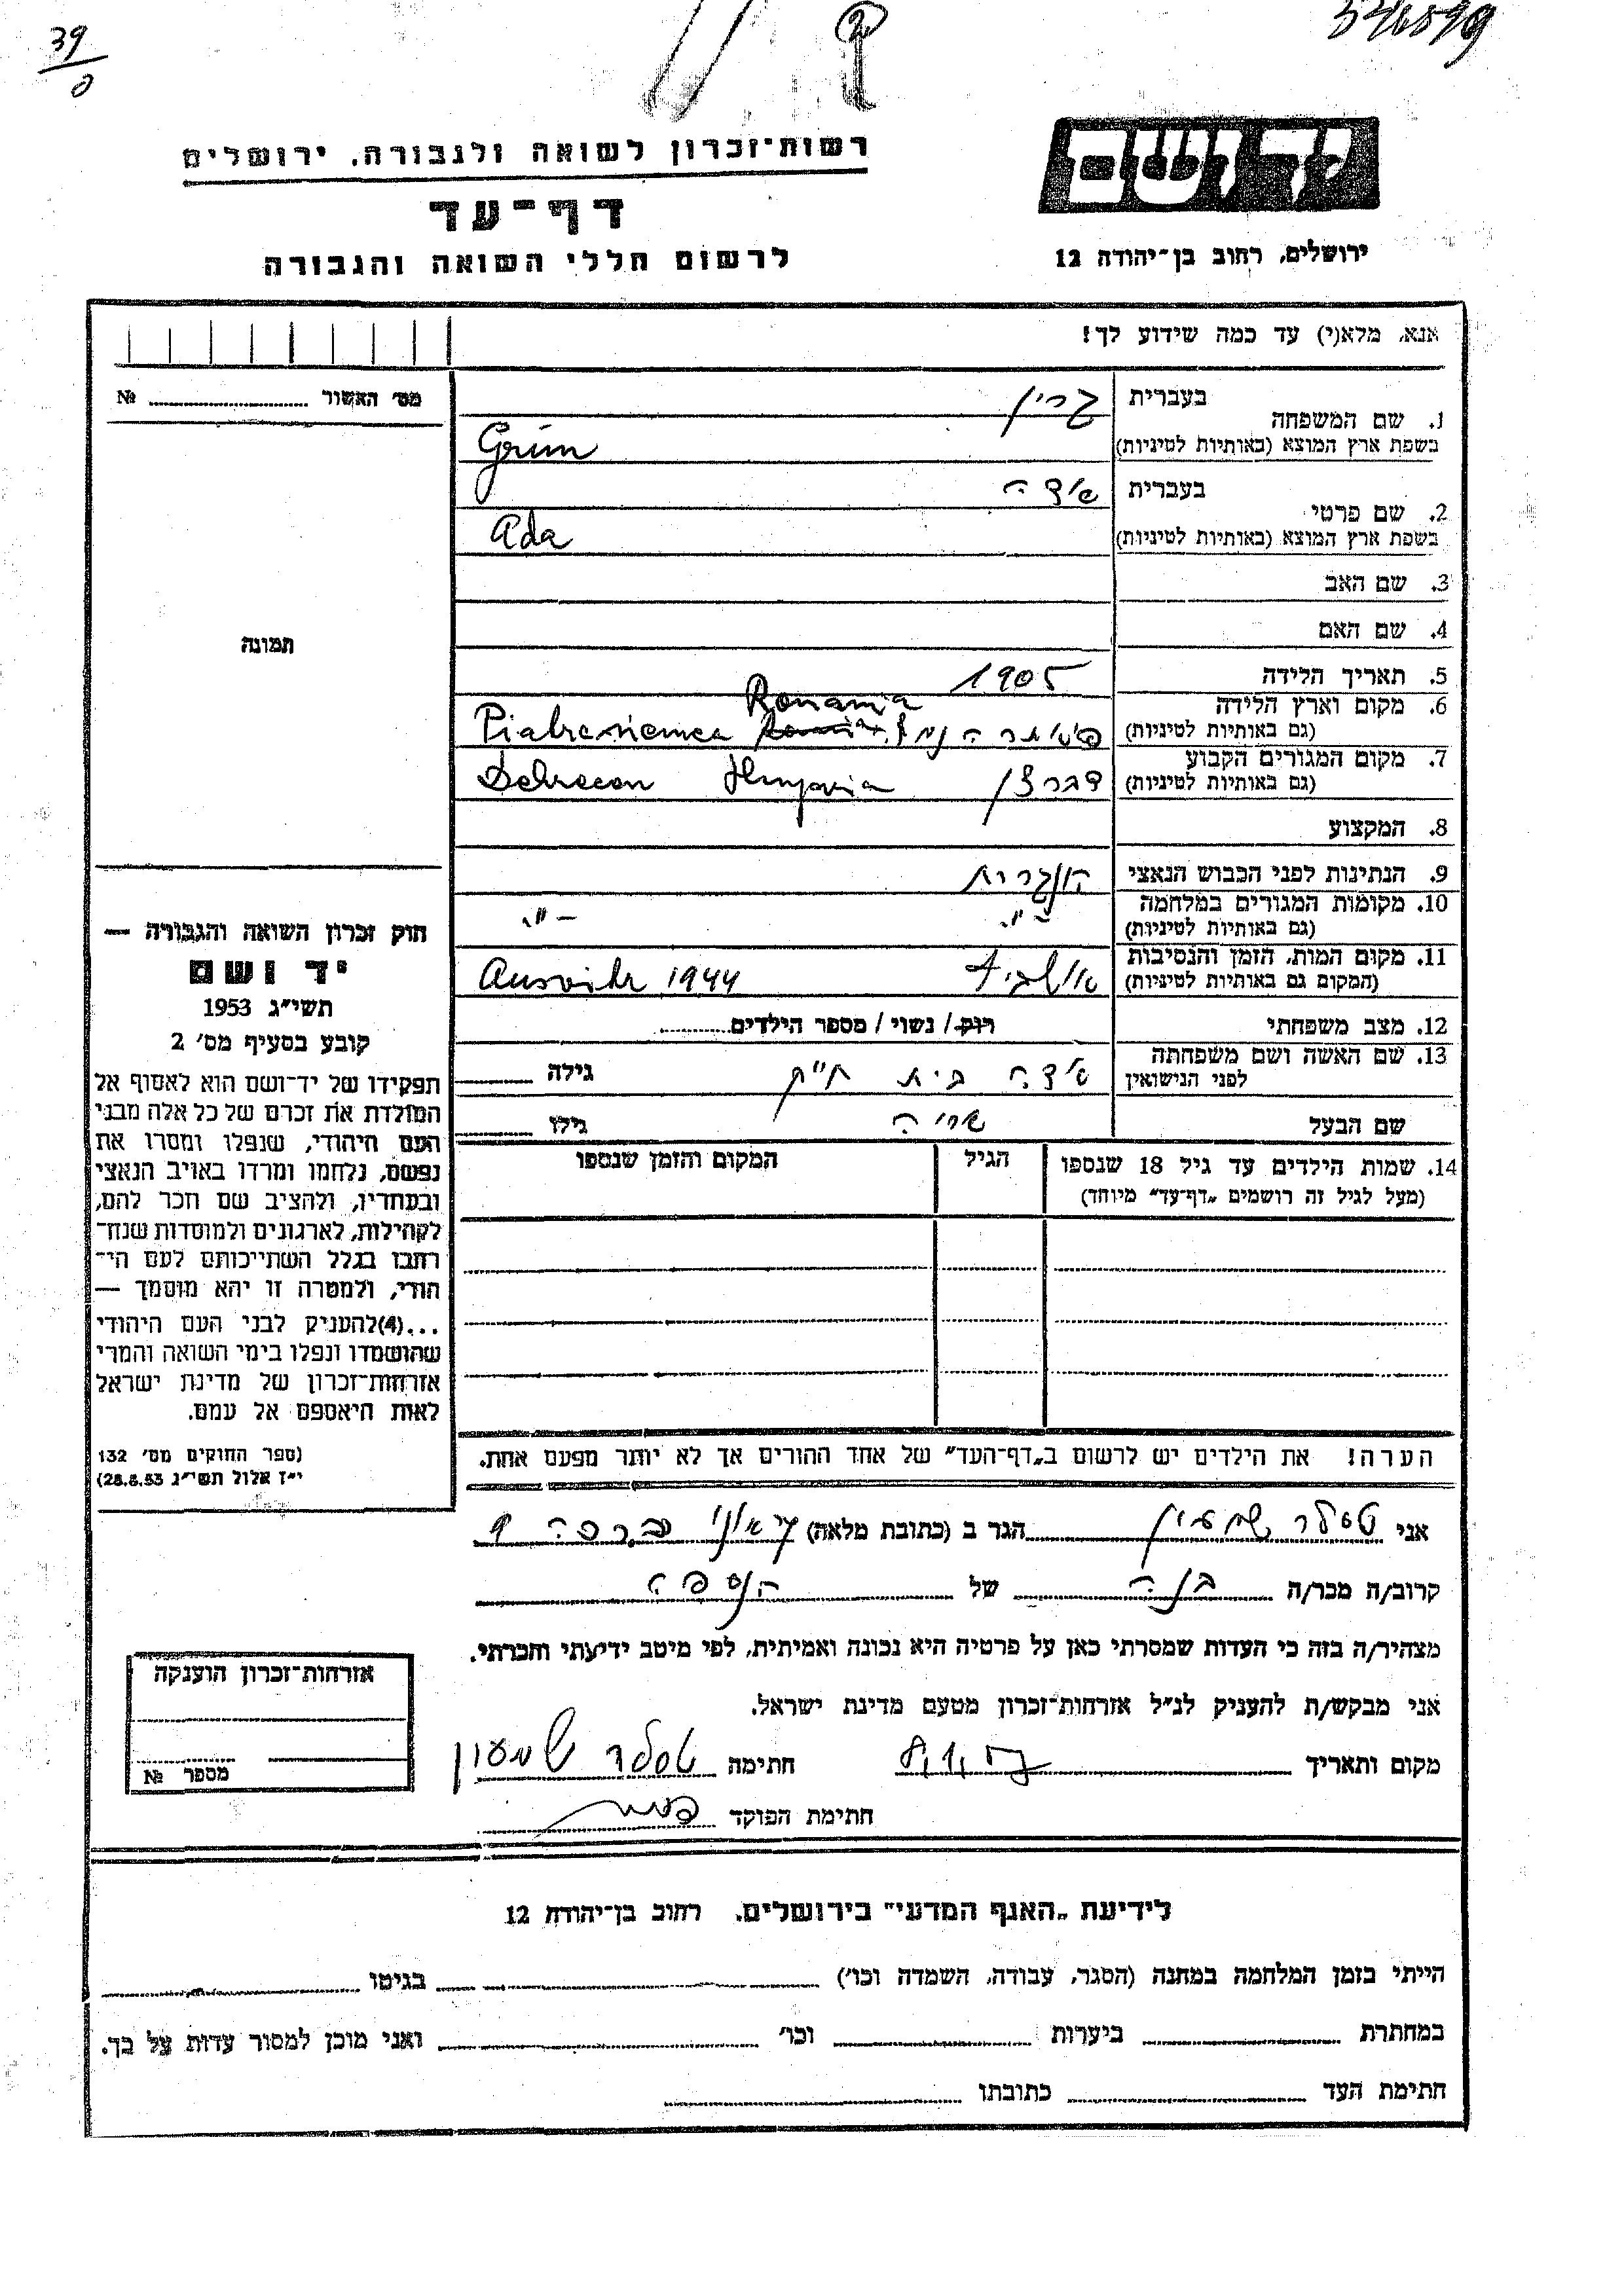 39
0
יד ושם
רשות־זכרון לשואה ולגבורה, ירושלים
דף־עד
לרשום חללי השואה והגבורה
ירושלים, רחוב בן־יהודה 12
אנא, מלא(י) עד כמה שידוע לך!
מס׳ האשור № 
1. שם המשפחה
בעברית גרין
בשפת ארץ המוצא (באותיות לטיניות) Grün
2. שם פרטי
בעברית אידה
בשפת ארץ המוצא (באותיות לטיניות) Ada
3. שם האב
4. שם האם
תמונה
5. תאריך הלידה 1905
6. מקום וארץ הלידה Romania
(גם באותיות לטיניות) Piatra niemca
7. מקום המגורים הקבוע
(גם באותיות לטיניות) דברצן Hungaria Debrecen
8. המקצוע
9. הנתינות לפני הכבוש הנאצי הונגרית
10. מקומות המגורים במלחמה -״- -״-
(גם באותיות לטיניות)
11. מקום המות, הזמן והנסיבות
(המקום גם באותיות לטיניות) אושביץ 1944
12. מצב משפחתי רוק / נשוי / מספר הילדים
13. שם האשה ושם משפחתה
לפני הנישואין אידה בית גילה
שם הבעל גילו
14. שמות הילדים עד גיל 18 שנספו
(מעל לגיל זה רושמים „דף־עד״ מיוחד)
הגיל
המקום והזמן שנספו
חוק זכרון השואה והגבורה —
יד ושם
תשי״ג 1953
קובע בסעיף מס׳ 2
תפקידו של יד־ושם הוא לאסוף אל
המולדת את זכרם של כל אלה מבני
העם היהודי, שנפלו ומסרו את
נפשם, נלחמו ומרדו באויב הנאצי
ובעוזריו, ולהציב שם וזכר להם,
לקהילות, לארגונים ולמוסדות שנח־
רבו בגלל השתייכותם לעם הי־
הודי, ולמטרה זו יהא מוסמך —
...(4) להעניק לבני העם היהודי
שהושמדו ונפלו בימי השואה והמרי
אזרחות־זכרון של מדינת ישראל
לאות היאספם אל עמם.
(ספר החוקים מס׳ 132
י״ז אלול תשי״ג 28.8.53)
הערה! את הילדים יש לרשום ב„דף־העד״ של אחד ההורים אך לא יותר מפעם אחת.
אני טסלר שמעון הגר ב (כתובת מלאה) 9
קרוב/ה מכר/ה בנה של הנספה
מצהיר/ה בזה כי העדות שמסרתי כאן על פרטיה היא נכונה ואמיתית, לפי מיטב ידיעתי והכרתי.
אני מבקש/ת להעניק לנ״ל אזרחות־זכרון מטעם מדינת ישראל.
מקום ותאריך חתימה טסלר שמעון
חתימת הפוקד
אזרחות־זכרון הוענקה
מספר №
לידיעת „האגף המדעי״ בירושלים, רחוב בן־יהודה 12
הייתי בזמן המלחמה במחנה (הסגר, עבודה, השמדה וכו׳) בגיטו
במחתרת ביערות וכו׳ ואני מוכן למסור עדות על כך.
חתימת העד כתובתו